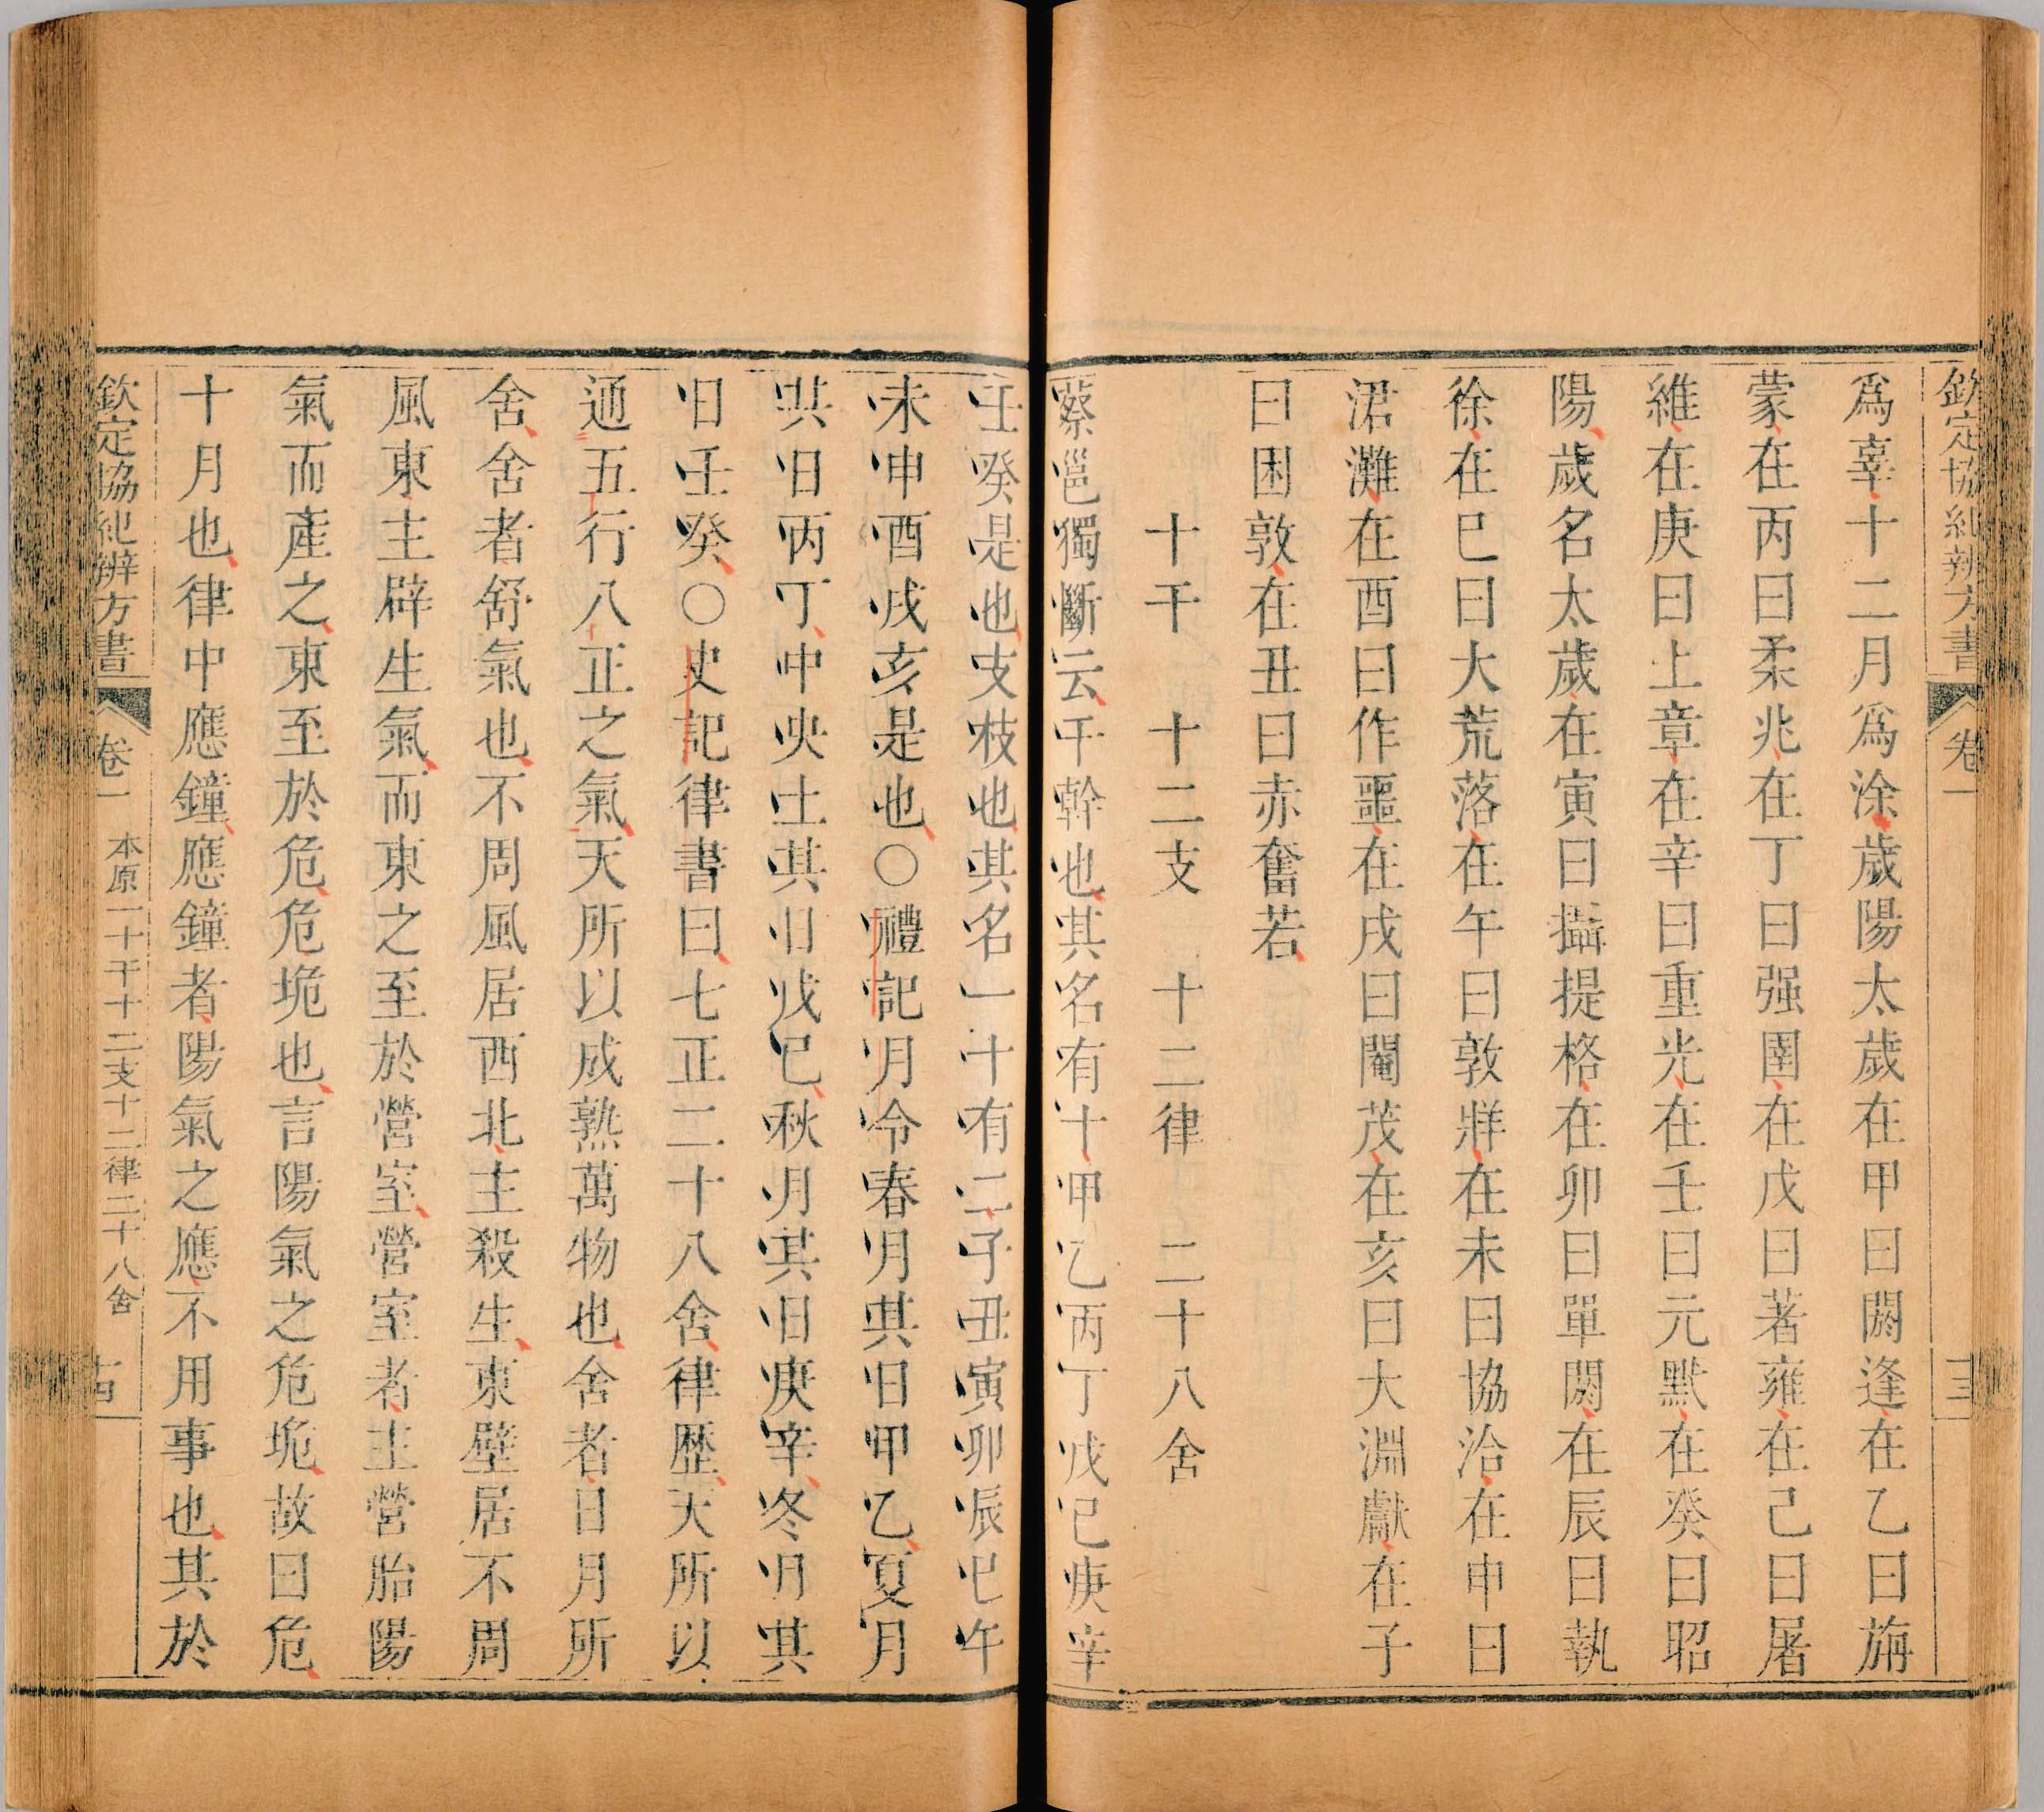 欽定協紀辨方書 卷一 十三
爲辜十二月爲涂歲陽太歲在甲曰閼逢在乙曰旃
蒙在丙曰柔兆在丁曰强圉在戊曰著雍在己曰屠
維在庚曰上章在辛曰重光在壬曰元黓在癸曰昭
陽歲名太歲在寅曰攝提格在卯曰單閼在辰曰執
徐在巳曰大荒落在午曰敦牂在未曰協洽在申曰
涒灘在酉曰作噩在戌曰閹茂在亥曰大淵獻在子
曰困敦在丑曰赤奮若
十干 十二支 十二律 二十八舍
蔡邕獨斷云干幹也其名有十甲乙丙丁戊己庚辛
壬癸是也支枝也其名一十有二子丑寅卯辰巳午
未申酉戌亥是也○禮記月令春月其日甲乙夏月
其日丙丁中央土其日戊己秋月其日庚辛冬月其
日壬癸○史記律書曰七正二十八舍律歷天所以
通五行八正之氣天所以成熟萬物也舍者日月所
舍舍者舒氣也不周風居西北主殺生東壁居不周
風東主辟生氣而東之至於營室營室者主營胎陽
氣而產之東至於危危垝也言陽氣之危垝故曰危
十月也律中應鐘應鐘者陽氣之應不用事也其於
欽定協紀辨方書 卷一 本原一十干十二支十二律二十八舍 十四